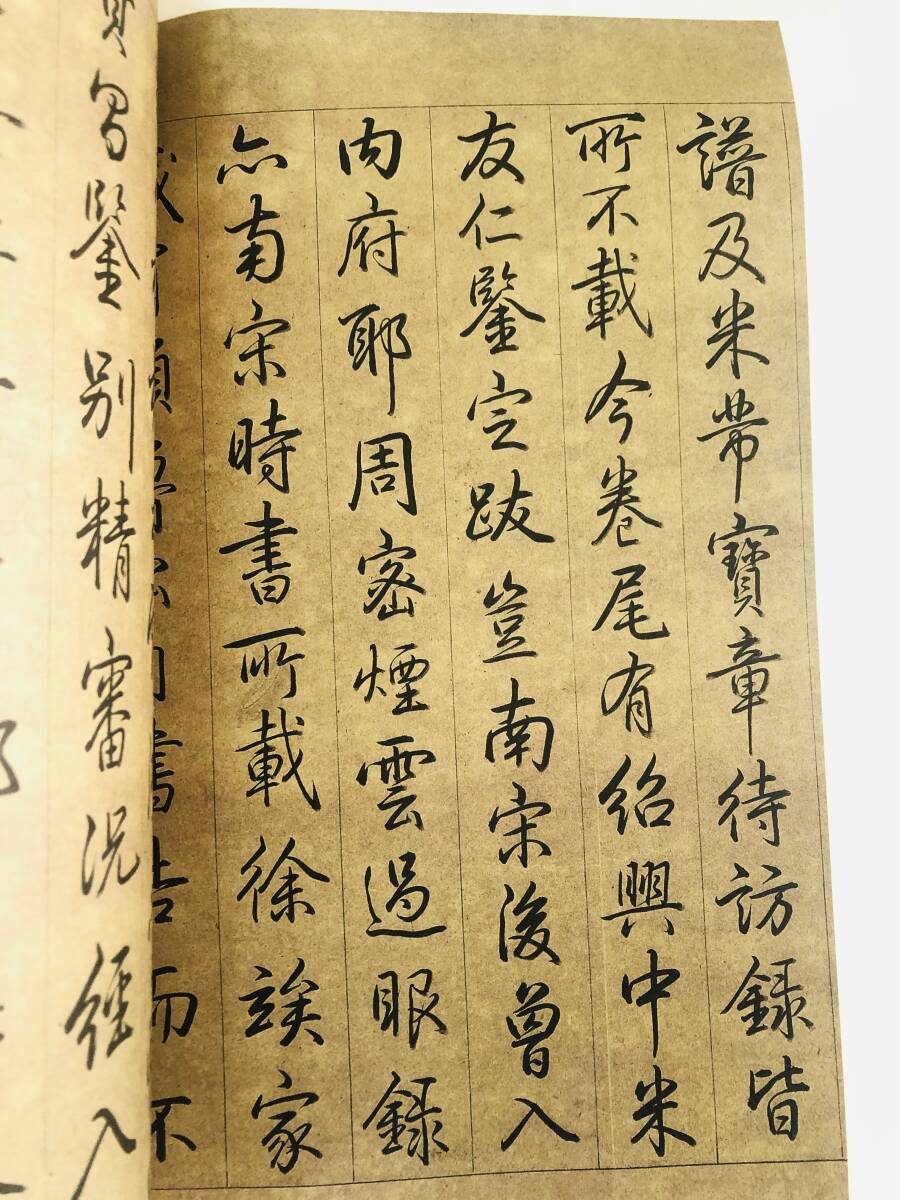 譜及米芾寶章待訪錄皆
所不載今卷尾有紹興中米
友仁鑒定跋豈南宋後曾入
內府耶周密煙雲過眼錄
亦南宋時書所載徐誒家
鑒別精審況經入